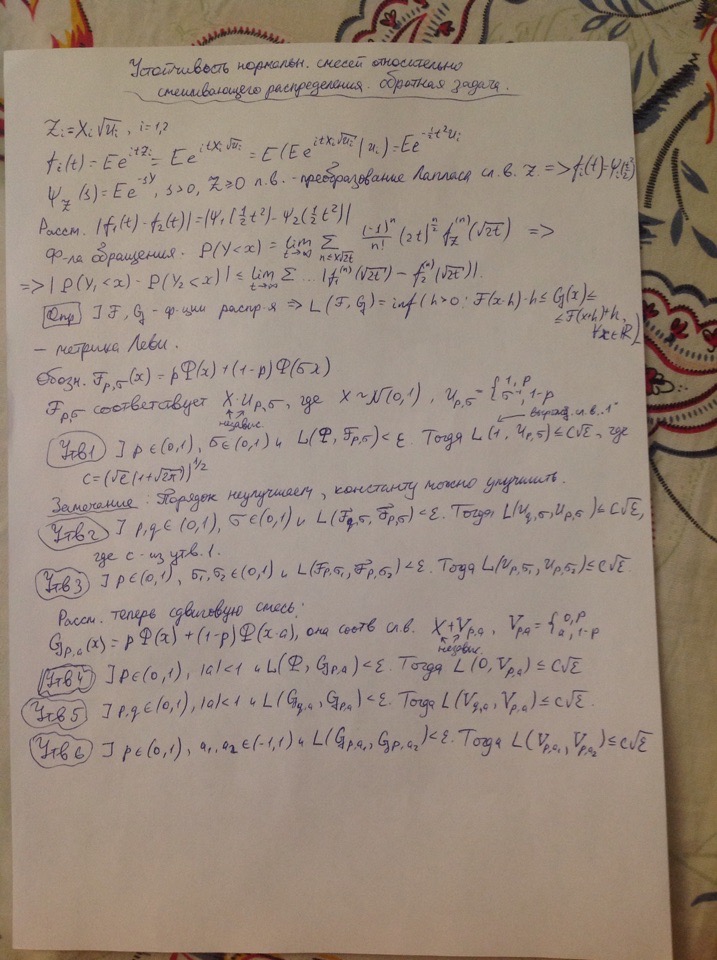 Устойчивость нормальн. смесей относительно
смешивающего распределения. Обратная задача.
Z_i = X_i √u_i, i=1,2
f_i(t) = E e^{itZ_i} = E e^{itX_i√u_i} = E(E e^{itX_i√u_i} | u_i) = E e^{-½t²u_i}
Ψ_Z(s) = E e^{-sY}, s>0, Z≥0 п.в. - преобразование Лапласа сл.в. Z. => f_i(t) = Ψ_i(t²/2)
Рассм. |f_1(t) - f_2(t)| = |Ψ_1(½t²) - Ψ_2(½t²)|
Ф-ла обращения. P(Y<x) = lim_{t→∞} Σ_{n≤x√2t} (-1)^n/n! (2t)^{n/2} f_Z^{(n)}(√2t) =>
=> |P(Y_1<x) - P(Y_2<x)| ≤ lim_{t→∞} Σ ... |f_1^{(n)}(√2t) - f_2^{(n)}(√2t)|.
Опр ] F, G - ф-ции распр-я => L(F, G) = inf(h>0: F(x-h)-h ≤ G(x) ≤
≤ F(x+h)+h, ∀x∈ℝ)
– метрика Леви.
Обозн. F_{p,σ}(x) = pΦ(x) + (1-p)Φ(σx)
F_{p,σ} соответствует X·U_{p,σ}, где X ~ N(0,1), U_{p,σ} = { 1, p
σ^{-1}, 1-p
независ.
вырожд. сл.в. "1"
Утв1 ] p∈(0,1), σ∈(0,1) и L(Φ, F_{p,σ}) < ε. Тогда L(1, U_{p,σ}) ≤ C√ε, где
C = (√e(1+√2π))^{1/2}
Замечание: Порядок неулучшаем, константу можно улучшить.
Утв2 ] p,q∈(0,1), σ∈(0,1) и L(F_{q,σ}, F_{p,σ}) < ε. Тогда L(U_{q,σ}, U_{p,σ}) ≤ C√ε,
где c - из утв. 1.
Утв3 ] p∈(0,1), σ_1,σ_2∈(0,1) и L(F_{p,σ_1}, F_{p,σ_2}) < ε. Тогда L(U_{p,σ_1}, U_{p,σ_2}) ≤ C√ε.
Рассм. теперь сдвиговую смесь:
G_{p,a}(x) = pΦ(x) + (1-p)Φ(x-a), она соотв сл.в. X+V_{p,a}, V_{p,a} = { 0, p
a, 1-p
независ.
Утв4 ] p∈(0,1), |a|<1 и L(Φ, G_{p,a}) < ε. Тогда L(0, V_{p,a}) ≤ C√ε
Утв5 ] p,q∈(0,1), |a|<1 и L(G_{q,a}, G_{p,a}) < ε. Тогда L(V_{q,a}, V_{p,a}) ≤ C√ε.
Утв6 ] p∈(0,1), a_1,a_2∈(-1,1) и L(G_{p,a_1}, G_{p,a_2}) < ε. Тогда L(V_{p,a_1}, V_{p,a_2}) ≤ C√ε